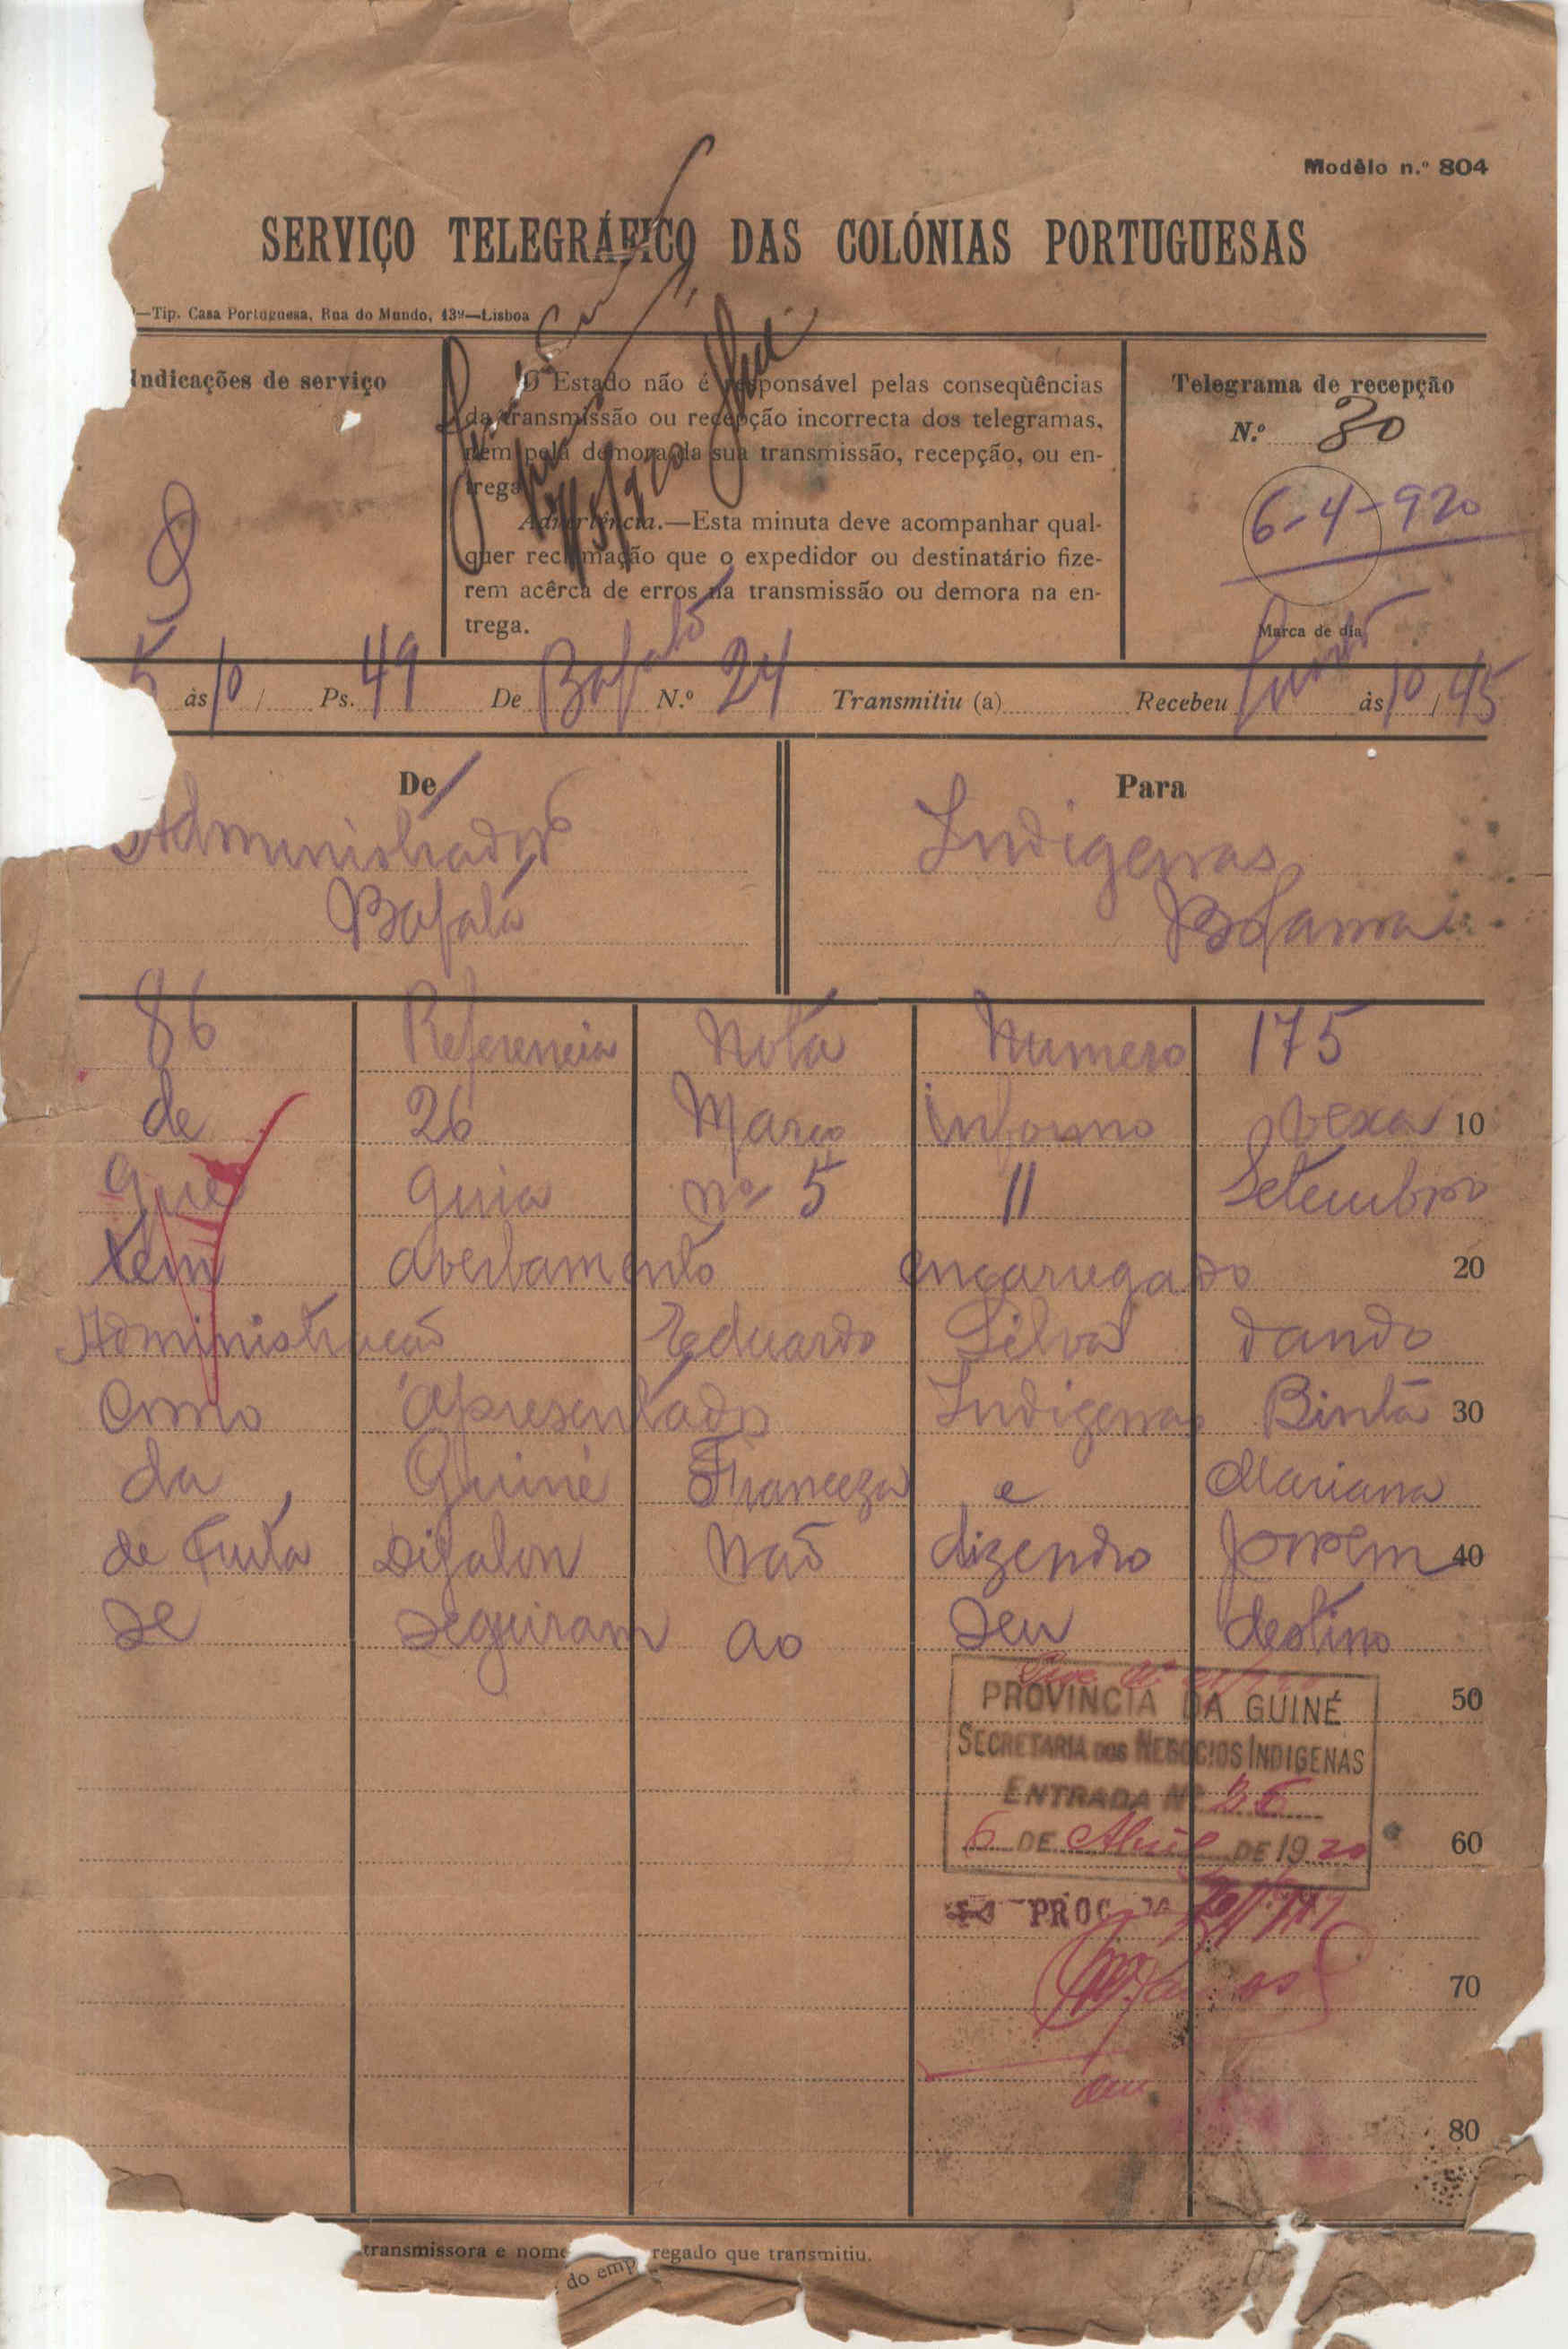 Modêlo n.º 804
SERVIÇO TELEGRÁFICO DAS COLÓNIAS PORTUGUESAS
—Tip. Casa Portuguesa, Rua do Mundo, 139—Lisboa
Indicações de serviço
O Estado não é responsável pelas conseqüências
da transmissão ou recepção incorrecta dos telegramas,
nem pela demora da sua transmissão, recepção, ou en-
trega
Advertência.—Esta minuta deve acompanhar qual-
quer reclamação que o expedidor ou destinatário fize-
rem acêrca de erros na transmissão ou demora na en-
trega.
Telegrama de recepção
N.º 30
6-4-920
Marca de dia
5 às 10 / Ps. 49 De Bafatá N.º 24 Transmitiu (a) Recebeu às 10 / 45
De
Administrador
Bafatá
Para
Indigenas
Bolama
86 Referencia Nota Numero 175
de 26 Março informo vexa 10
que guia nº 5 11 Setembro
tem averbamento encarregado 20
Administração Eduardo Silva dando
como apresentado Indigenas Binta 30
da Guiné Franceza e Mariana
de Futa Djalon não dizendo porem 40
se seguiram ao seu destino
50
PROVINCIA DA GUINÉ
SECRETARIA DOS NEGOCIOS INDIGENAS
ENTRADA Nº 36
6 DE Abril DE 1920
60
PROC
70
80
transmissora e nome do empregado que transmitiu.